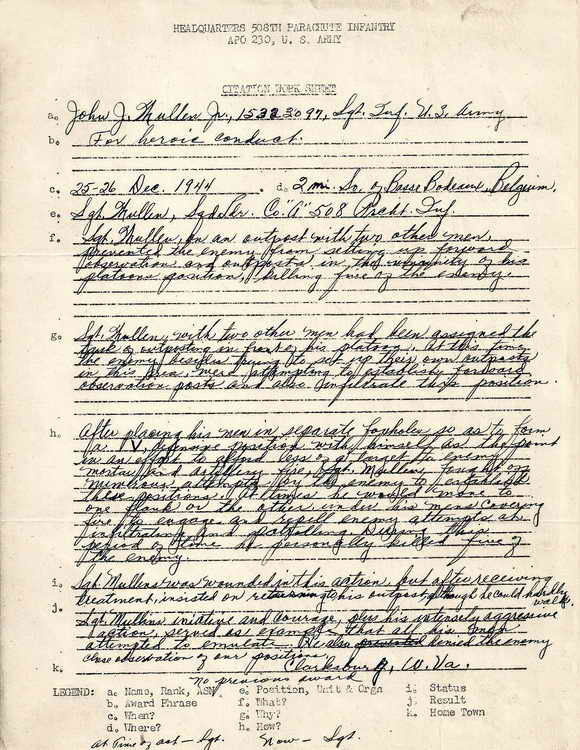 HEADQUARTERS 508TH PARACHUTE INFANTRY
APO 230, U. S. ARMY
CITATION WORK SHEET
a. John J. Mullen Jr., 15323097, Sgt. Inf. U.S. Army
b. For heroic conduct.
c. 25-26 Dec. 1944 d. 2 mi. So. of Basse Bodeaux, Belgium.
e. Sgt. Mullen, Sqd. Ldr. Co. "A" 508 Prcht. Inf.
f. Sgt. Mullen, on an outpost with two other men,
prevented the enemy from setting up forward
observations and outposts in the vicinity of his
platoons position, killing five of the enemy.
g. Sgt. Mullen, with two other men had been assigned the
task of outposting in front of his platoon. At this time
the enemy, besides trying to set up their own outposts
in this area, were attempting to establish forward
observation posts and also infiltrate this position.
h. After placing his men in separate foxholes so as to form
a V position with himself as the point
in an effort to afford less of a target to enemy
mortar and artillery fire, Sgt. Mullen, fought off
numerous attempts by the enemy to establish
these positions. At times he would move to
one flank or the other under his mens covering
fire to engage and repell enemy attempts at
infiltrating and patrolling. During this
period of time he personally killed five of
the enemy.
i. Sgt. Mullens was wounded in this action, but after receiving
treatment, insisted on returning to his outpost, though he could hardly
walk.
j. Sgt. Mullins iniative and courage, plus his intensely aggressive
action, served as example that all his men
attempted to emulate. He also prevented denied the enemy
close observation of our position.
k. Clarksburg, W. Va.
No previous award
LEGEND: a. Name, Rank, ASN e. Position, Unit & Orgn i. Status
b. Award Phrase f. What? j. Result
c. When? g. Why? k. Home Town
d. Where? h. How?
At time of act - Sgt. Now - Sgt.